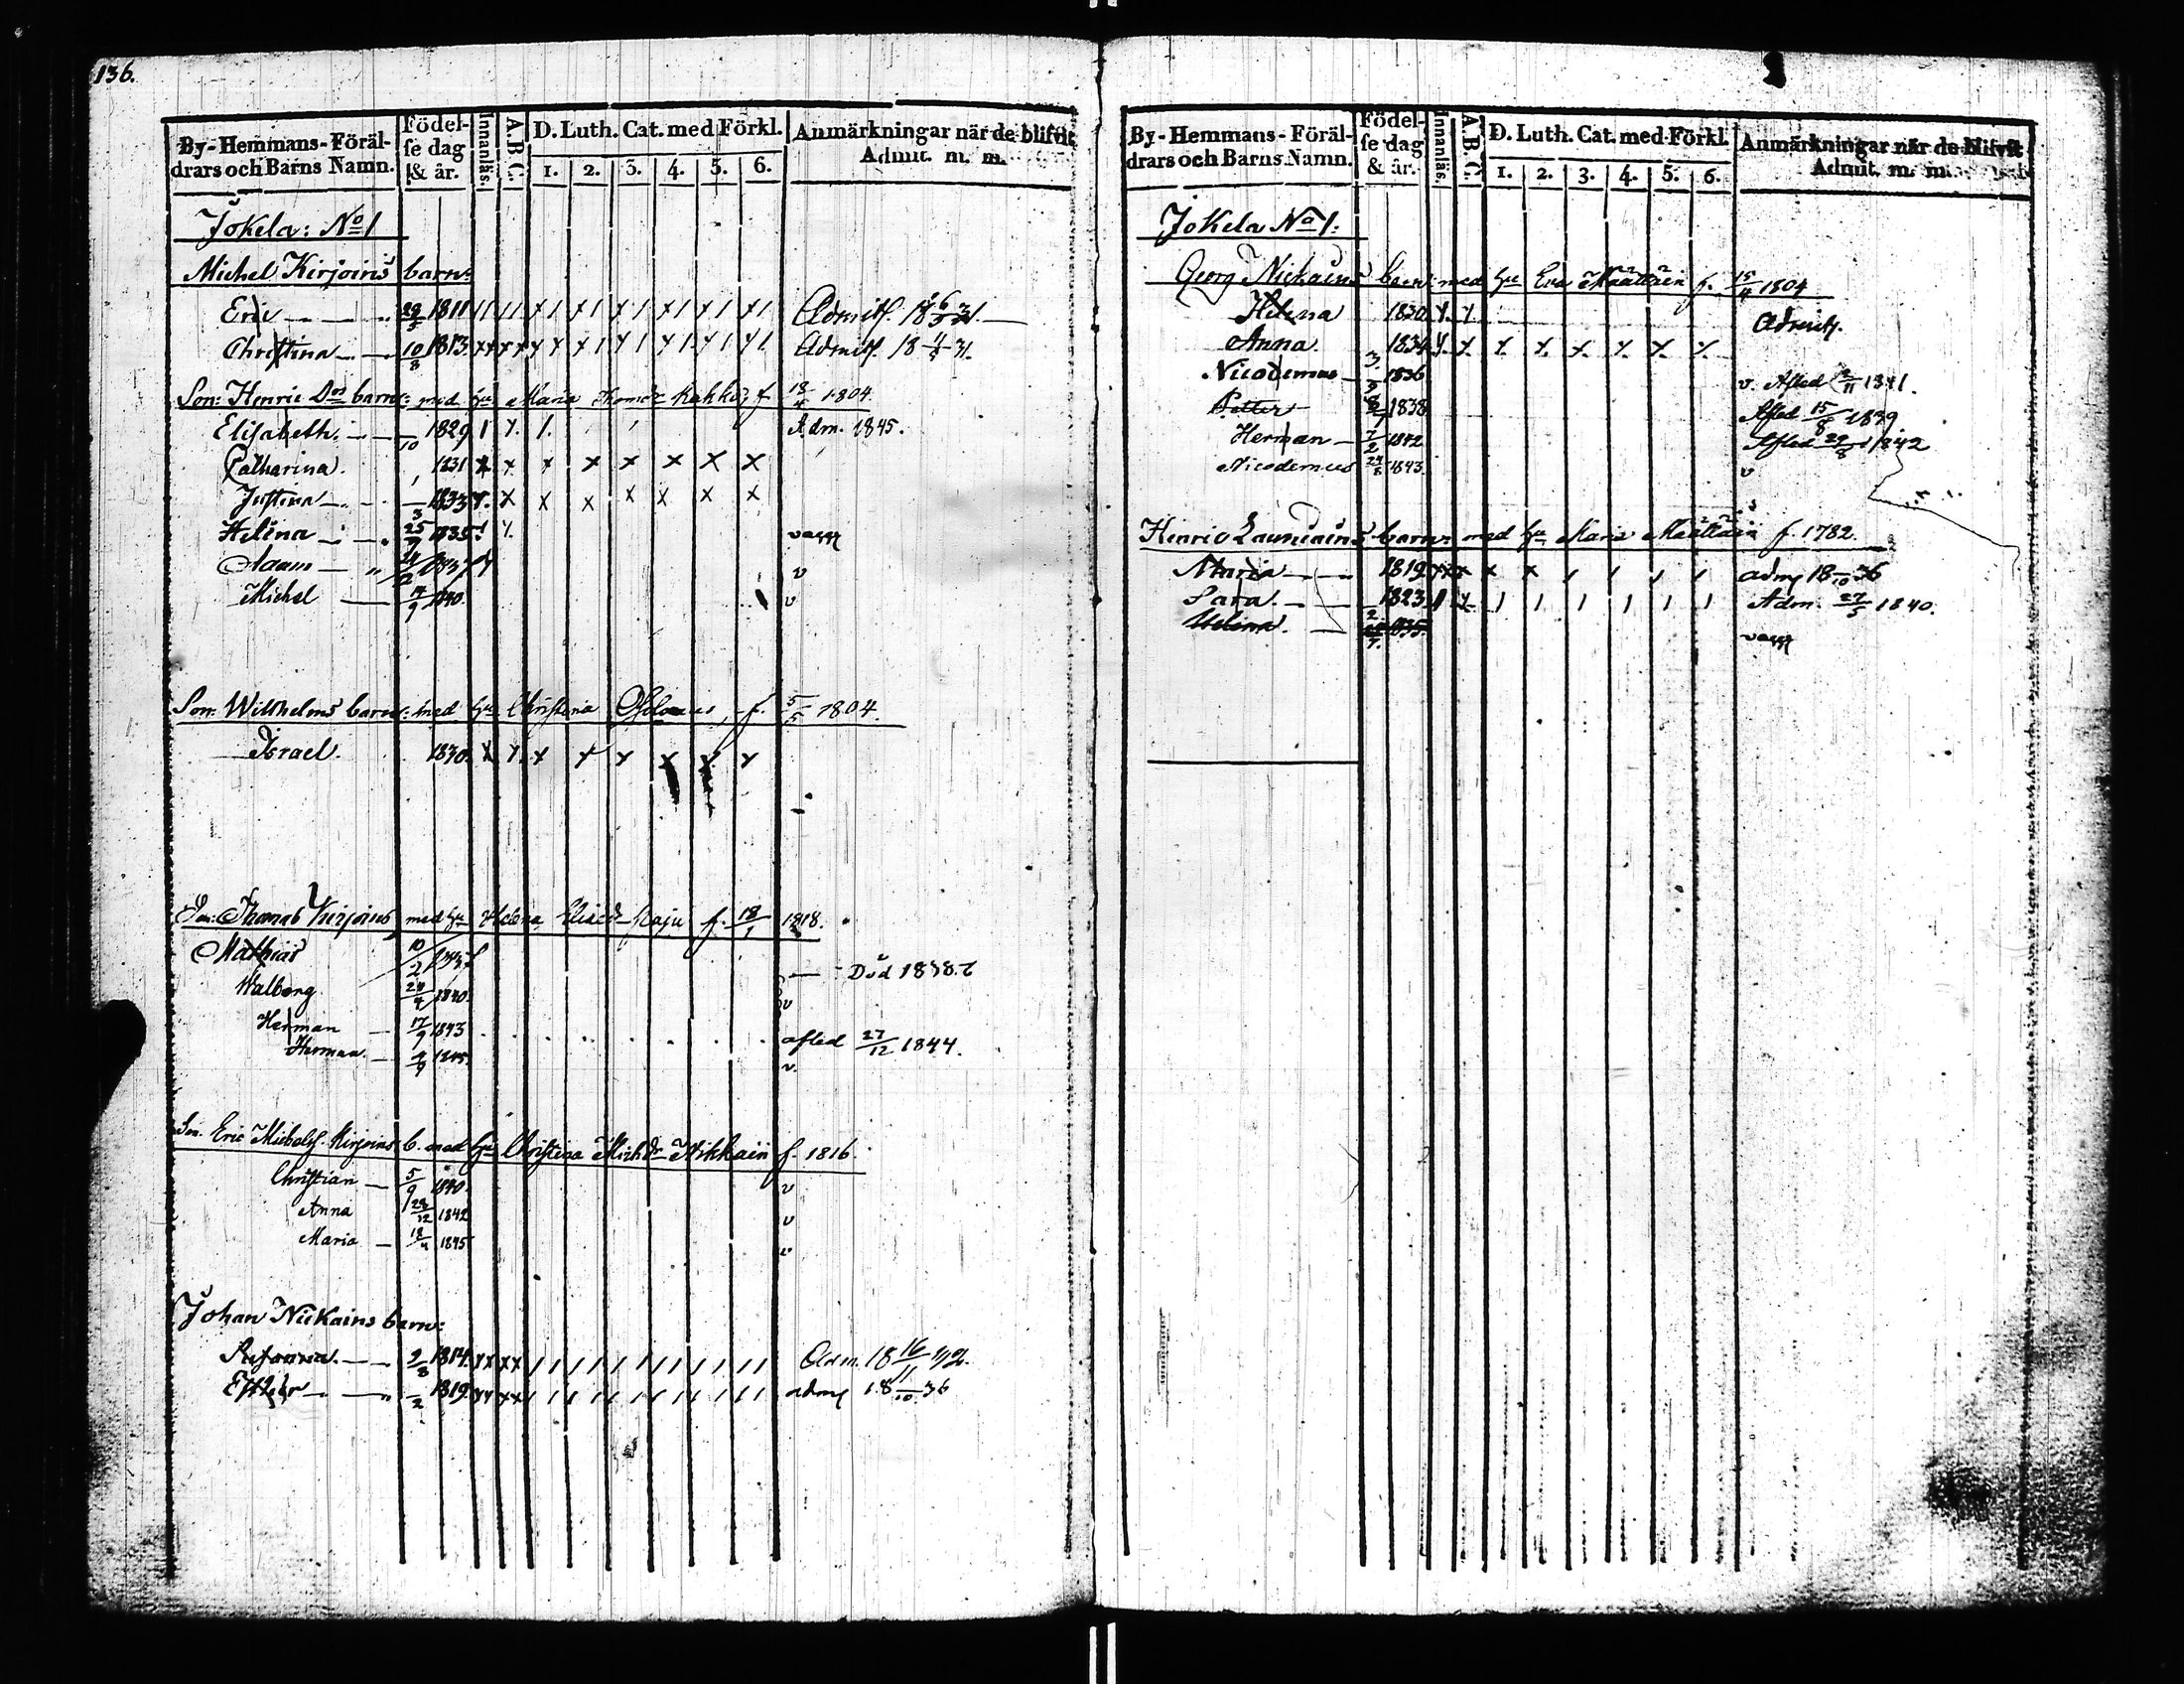 136.
By-Hemmans-Föräl-drars och Barns Namn. Födel-se dag & år. Innanläs. A.B.C. D. Luth. Cat. med Förkl. 1. 2. 3. 4. 5. 6. Anmärkningar när de blifvit Admit. m. m.
Jokela: No 1
Michel Kirjoins barn:
Eric 29/5 1811 Admitt. 18 6/3 31.
Christina 10/8 1813. Admitt. 18 4/3 31.
Son: Henric barn: med Maria f. 18/4 1804.
Elisabeth. /10 1829 Adm. 1845.
Catharina. 1831
Justina /3 1833
Helena 25/9 1835
Adam 1837
Michel 14/9 1840. v
Son: Willhelms barn: med Christina f. 5/5 1804.
Israel. 1830.
Son: Thomas Kirjoins med Helena f. 18/1 1818.
Mathias 10/2 1837 Död 1838.
Walborg 24/4 1840. v
Herman 17/9 1843 afled 27/12 1844.
Herman 1845. v.
Son. Eric Michelss. Kirjoins b. med Christina Mich dr Nikkain f. 1816.
Christian 5/9 1840. v
Anna 28/12 1842 v
Maria 18/4 1845 v
Johan Nickains barn:
Susanna. 9/8 1814. Adm. 18 16/11 32.
Esther /2 1819. adm 18 /10 36
By-Hemmans-Föräl-drars och Barns Namn. Födel-se dag & år. Innanläs. A.B.C. D. Luth. Cat. med Förkl. 1. 2. 3. 4. 5. 6. Anmärkningar när de blifvit Admit. m. m.
Jokela No 1:
Georg Nickains barn med Eva Määttäin f. 15/4 1804
Helena 1830. Admitt.
Anna. 1834
Nicodemus 3/3 1836 v. Afled /11 1841.
Petter 1838 Afled 15/8 1839
Herman 7/2 1842 Afled 29/8 1842
Nicodemus 24/8 1843. v
Henric Launiains barn: med Maria Määttäin f. 1782.
Maria 1819 adm 18 /10 36
Sara. 1823. Adm. 27/5 1840.
Helena. 1835.